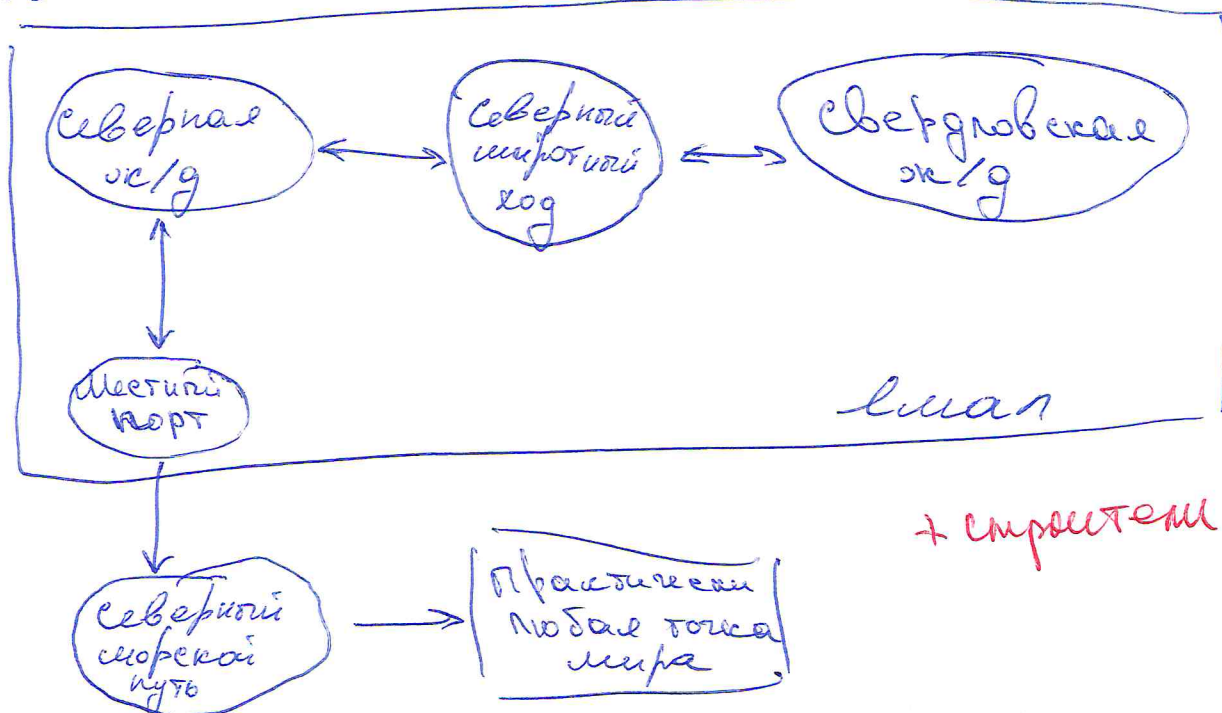 Северная
ж/д
Северный
широтный
ход
Свердловская
ж/д
Местный
порт
Ямал
+ строители
Северный
морской
путь
Практически
любая точка
мира